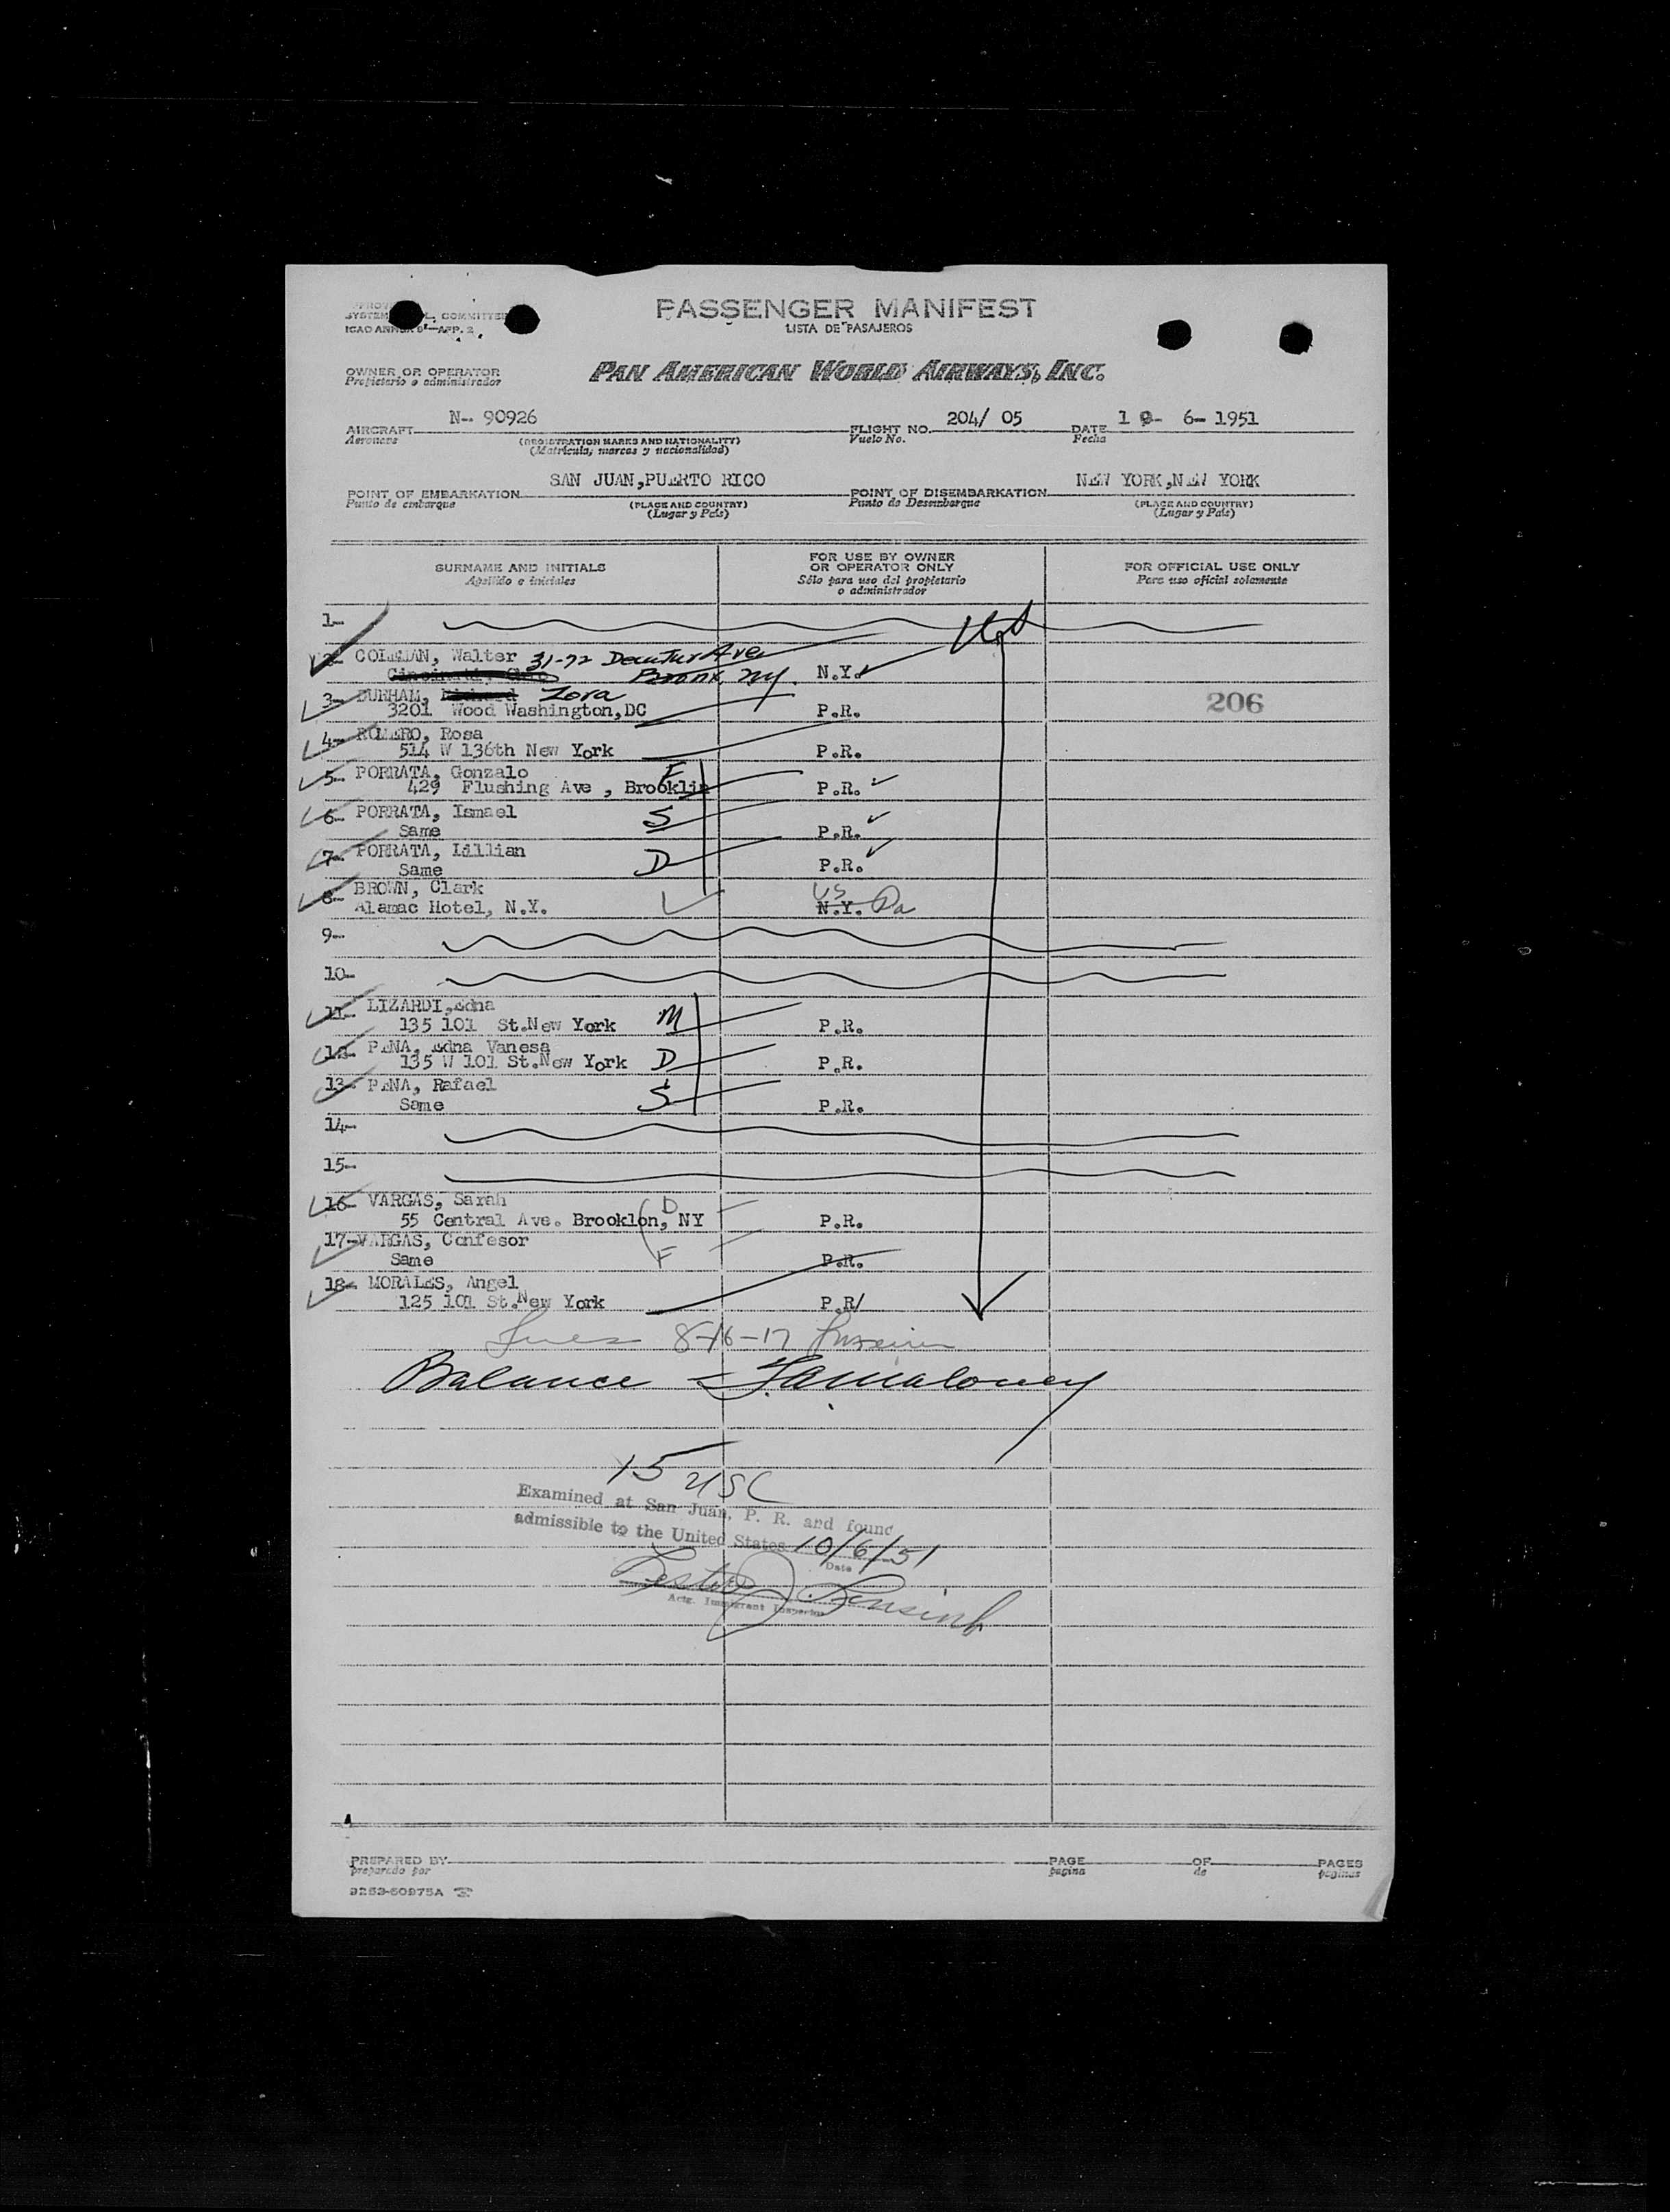 PASSENGER MANIFEST
LISTA DE PASAJEROS
SYSTEM COMMITTEE
ICAO ANNEX 9—APP. 2
OWNER OR OPERATOR
Propietario o administrador
PAN AMERICAN WORLD AIRWAYS, INC.
AIRCRAFT N-- 90926 FLIGHT NO. 204/ 05 DATE 1 0- 6- 1951
Aeronave (REGISTRATION MARKS AND NATIONALITY) Vuelo No. Fecha
(Matrícula, marcas y nacionalidad)
POINT OF EMBARKATION SAN JUAN,PUERTO RICO POINT OF DISEMBARKATION NEW YORK,NEW YORK
Punto de embarque (PLACE AND COUNTRY) Punto de Desembarque (PLACE AND COUNTRY)
(Lugar y País) (Lugar y País)
SURNAME AND INITIALS FOR USE BY OWNER OR OPERATOR ONLY FOR OFFICIAL USE ONLY
Apellido e iniciales Sólo para uso del propietario o administrador Para uso oficial solamente
1-
2- COLEMAN, Walter 31-72 Decatur Ave
Bronx, NY. N.Y.
3- DURHAM, Zora
3201 Wood Washington,DC P.R. 206
4- ROMERO, Rosa
514 W 136th New York P.R.
5- PORRATA, Gonzalo F
429 Flushing Ave , Brooklin P.R.
6- PORRATA, Ismael S
Same P.R.
7- PORRATA, Lillian D
Same P.R.
8- BROWN, Clark US
Alamac Hotel, N.Y. N.Y. Pa
9--
10-
11- LIZARDI,Edna
135 101 St.New York M P.R.
12- PENA, Edna Vanesa
135 W 101 St.New York D P.R.
13- PENA, Rafael
Same S P.R.
14-
15--
16- VARGAS, Sarah D
55 Central Ave. Brooklon, NY P.R.
17-VARGAS, Confesor
Same F P.R.
18- MORALES, Angel
125 101 St.New York P.R/
8-16-17
Balance - Maloney
15 USC
Examined at San Juan, P. R. and found
admissible to the United States 10/6/51
Date
Actg. Immigrant Inspector
PREPARED BY PAGE OF PAGES
preparado por página de páginas
9253-60975A